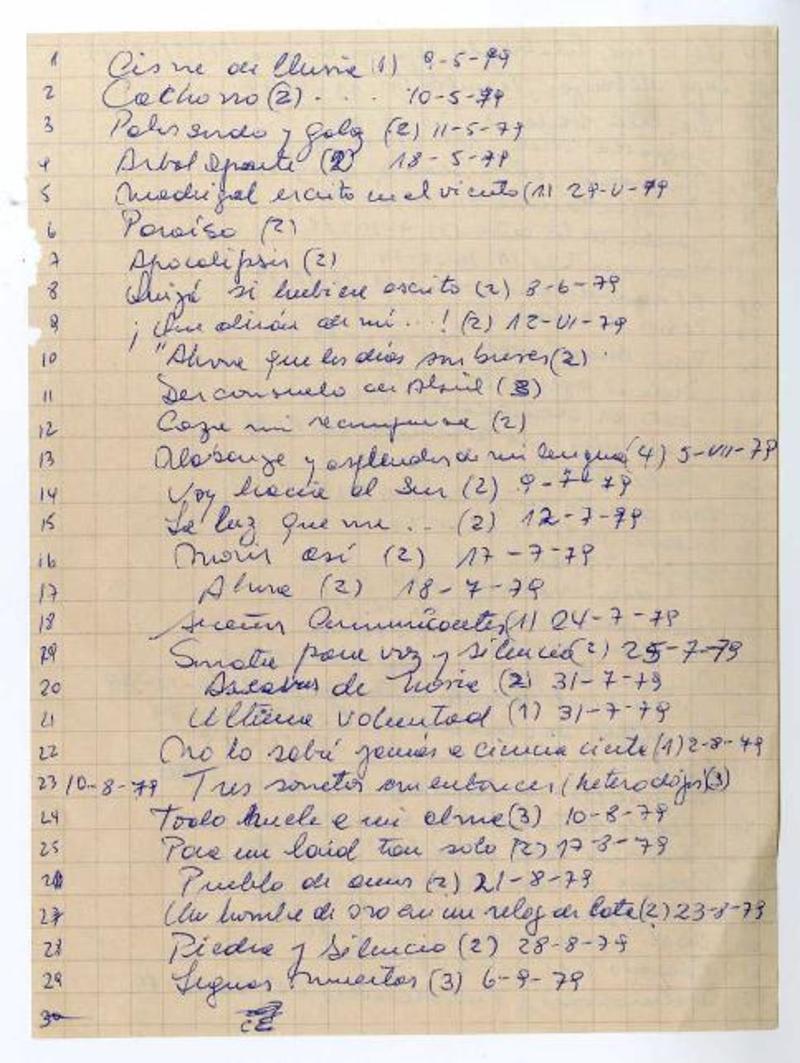 1 Cisne de lluvia (1) 9-5-79
2 (2) . . . 10-5-79
3 y (2) 11-5-79
4 Arbol aparte (2) 18-5-79
5 Madrigal escrito en el viento (1) 29-V-79
6 Paraíso (2)
7 Apocalipsis (2)
8 Quizá si hubiera escrito (2) 3-6-79
9 ¡Que dirán de mí...! (2) 12-VI-79
10 "Ahora que los días son breves (2)
11 Desconsuelo en Abril (3)
12 mi recompensa (2)
13 Alabanza y esplendor de mi lengua (4) 5-VII-79
14 Voy hacia el Sur (2) 9-7-79
15 La luz que me .. (2) 12-7-79
16 Morir así (2) 17-7-79
17 Ahora (2) 18-7-79
18 (1) 24-7-79
19 Sonata para voz y silencio (2) 25-7-79
20 de (2) 31-7-79
21 Ultima voluntad (1) 31-7-79
22 No lo sabré jamás a ciencia cierta (1) 2-8-79
23 10-8-79 Tres sonetos (3)
24 Todo huele a mi alma (3) 10-8-79
25 Para un laúd tan solo (2) 17-8-79
26 Pueblo de amor (2) 21-8-79
27 Un hombre de oro en un reloj de lata (2) 23-8-79
28 Piedra y Silencio (2) 28-8-79
29 (3) 6-9-79
30